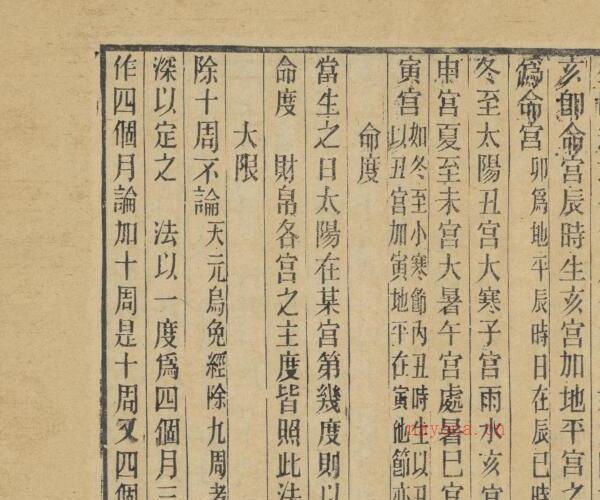 亥卽命宮辰時生亥宮加地平宮之
爲命宮 卯爲地平辰時日在辰巳時
冬至太陽丑宮大寒子宮雨水亥宮
申宮夏至未宮大暑午宮處暑巳宮
寅宮 如冬至小寒節內丑時生以丑
以丑宮加寅地平在寅他節亦
命度
當生之日太陽在某宮第幾度則以
命度 財帛各宮之主度皆照此法
大限
除十周不論 天元烏兔經除九周者
深以定之 法以一度爲四個月三
作四個月論加十周是十周又四個